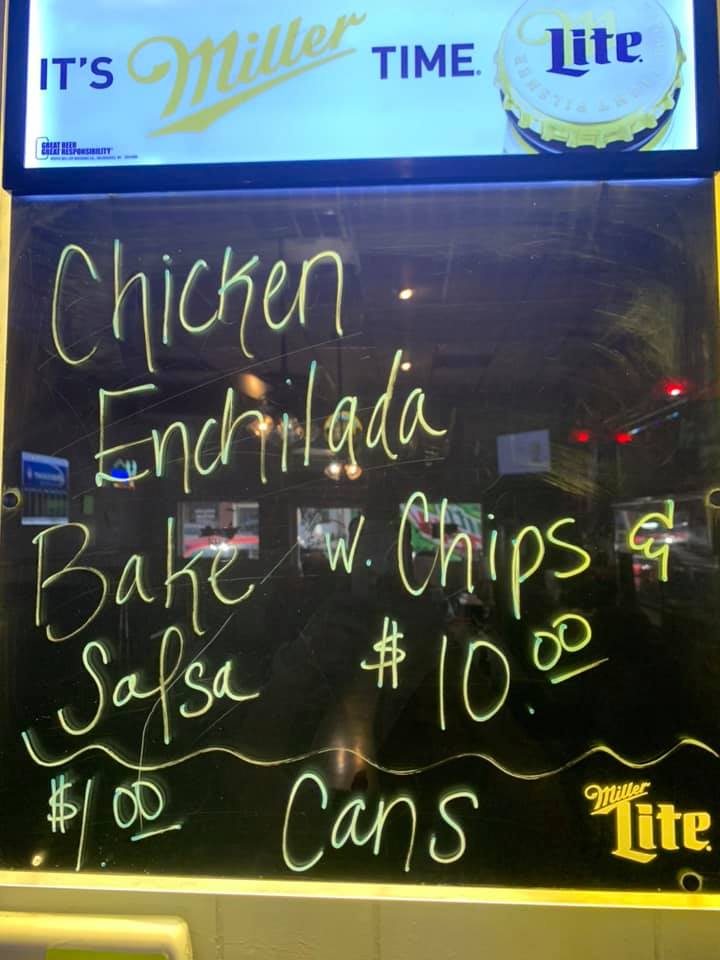 IT'S Miller TIME. Lite
GREAT BEER
GREAT RESPONSIBILITY
Chicken
Enchilada
Bake w. Chips &
Salsa $10.00
$1.00 Cans
Miller
Lite